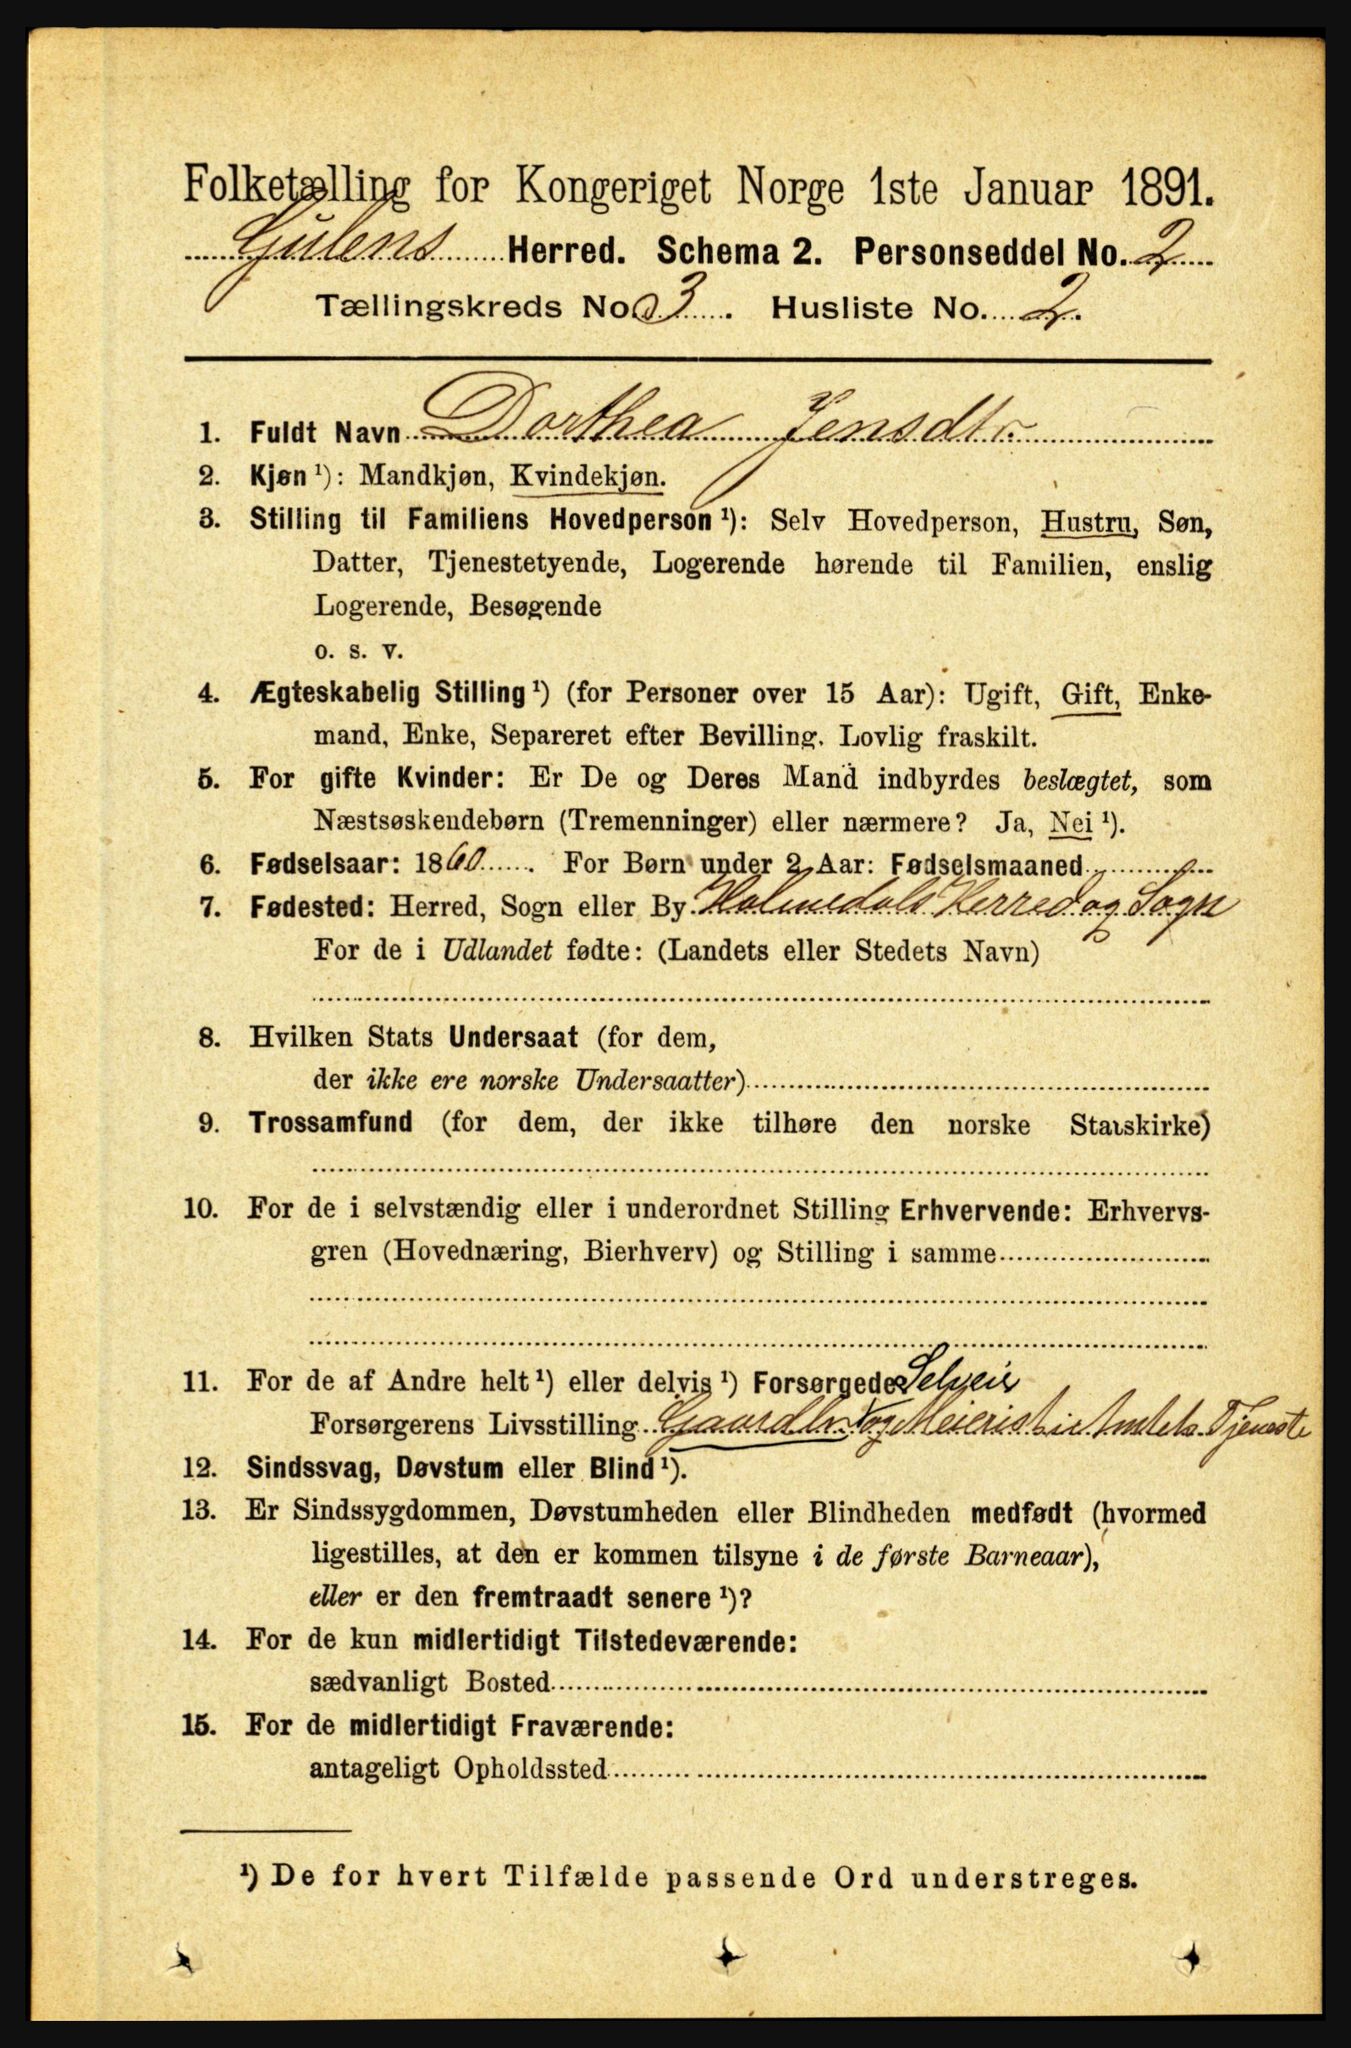 Folketælling for Kongeriget Norge 1ste Januar 1891.
Gulens Herred. Schema 2. Personseddel No. 2
Tællingskreds No. 3. Husliste No. 2.
1. Fuldt Navn Dorthea Jensdtr.
2. Kjøn ¹): Mandkjøn, Kvindekjøn.
3. Stilling til Familiens Hovedperson ¹): Selv Hovedperson, Hustru, Søn,
Datter, Tjenestetyende, Logerende hørende til Familien, enslig
Logerende, Besøgende
o. s. v.
4. Ægteskabelig Stilling ¹) (for Personer over 15 Aar): Ugift, Gift, Enke-
mand, Enke, Separeret efter Bevilling. Lovlig fraskilt.
5. For gifte Kvinder: Er De og Deres Mand indbyrdes beslægtet, som
Næstsøskendebørn (Tremenninger) eller nærmere? Ja, Nei ¹).
6. Fødselsaar: 1860. For Børn under 2 Aar: Fødselsmaaned
7. Fødested: Herred, Sogn eller By Holmedals Herred og Sogn
For de i Udlandet fødte: (Landets eller Stedets Navn)
8. Hvilken Stats Undersaat (for dem,
der ikke ere norske Undersaatter)
9. Trossamfund (for dem, der ikke tilhøre den norske Statskirke)
10. For de i selvstændig eller i underordnet Stilling Erhvervende: Erhvervs-
gren (Hovednæring, Bierhverv) og Stilling i samme
11. For de af Andre helt ¹) eller delvis ¹) Forsørgede Selveier
Forsørgerens Livsstilling Gaardbr. og Meierist i Amtets Tjeneste
12. Sindssvag, Døvstum eller Blind ¹).
13. Er Sindssygdommen, Døvstumheden eller Blindheden medfødt (hvormed
ligestilles, at den er kommen tilsyne i de første Barneaar),
eller er den fremtraadt senere ¹)?
14. For de kun midlertidigt Tilstedeværende:
sædvanligt Bosted
15. For de midlertidigt Fraværende:
antageligt Opholdssted
¹) De for hvert Tilfælde passende Ord understreges.